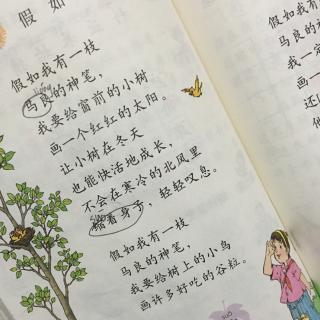 假如
假如我有一枝
马良的神笔，
我要给窗前的小树
画一个红红的太阳。
让小树在冬天
也能快活地成长，
不会在寒冷的北风里
缩着身子，轻轻叹息。
假如我有一枝
马良的神笔，
我要给树上的小鸟
画许多好吃的谷粒。
假如
马良的
我一定